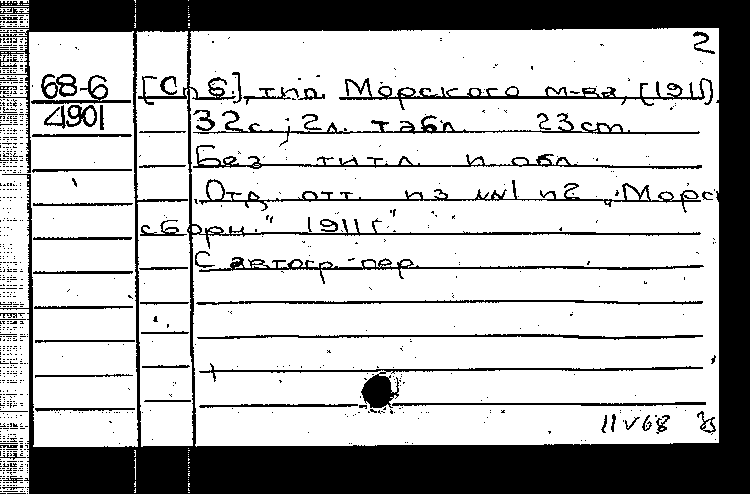 2
68-6 [Спб.], тип. Морского м-ва, [1911].
4901 32 с.; 2 л. табл. 23 cm.
Без тит. л. и обл.
Отд. отт. из №№1 и 2 „Морс
сборн." 1911 г."
С автогр. пер.
11 V 68